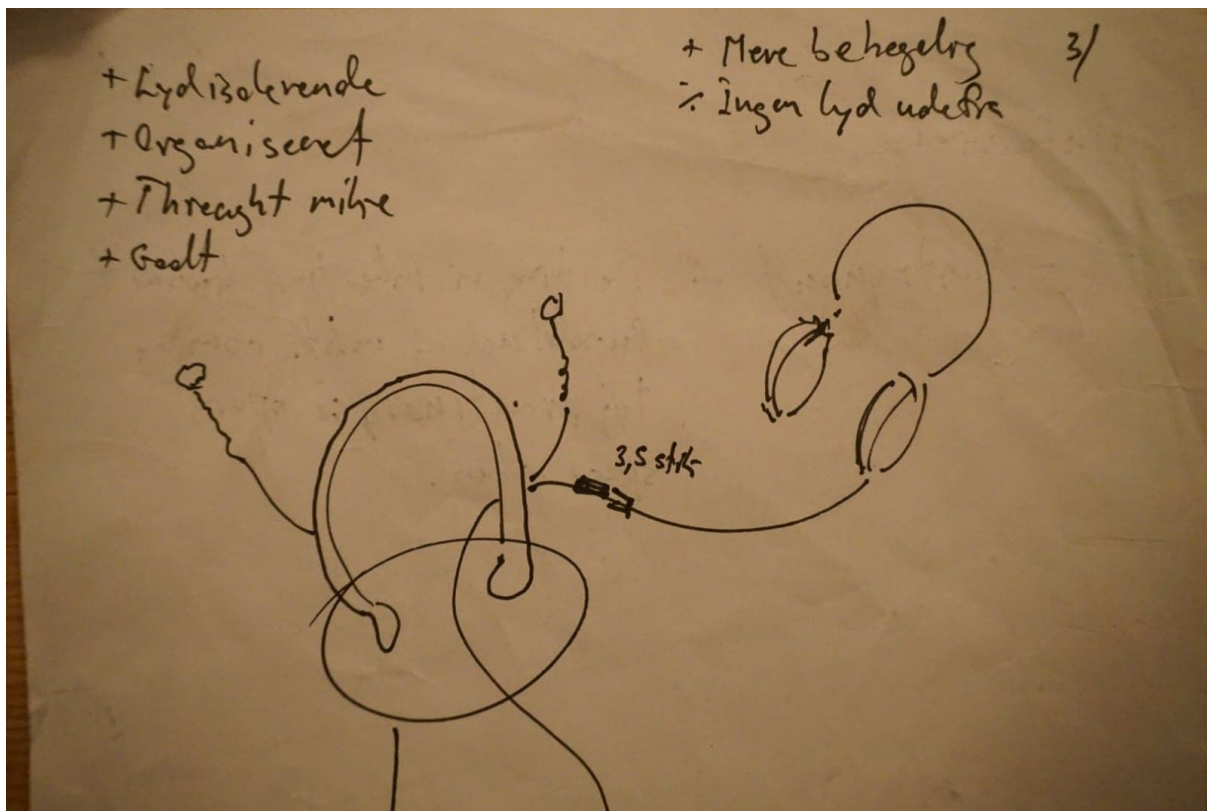 + Lydisolerende
+ Organiseret
+ Threaght mikre
+ Godt
+ Mere behagelig
÷ Ingen lyd udefra
3/
3,5 stik